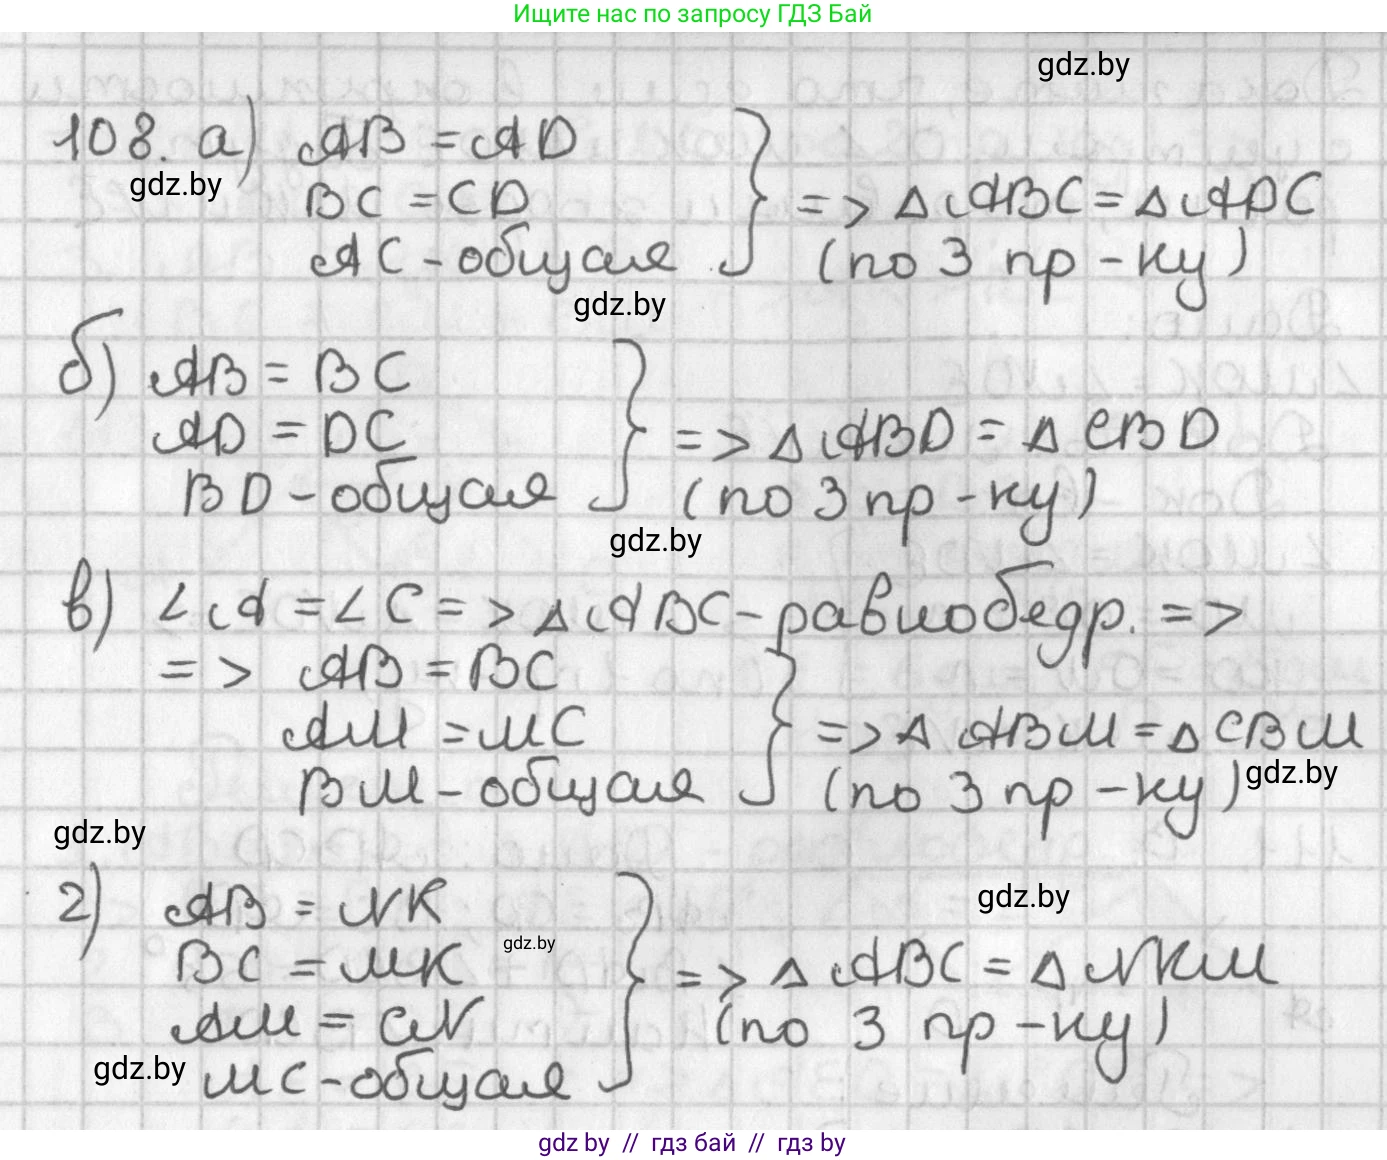 Ищите нас по запросу ГДЗ Бай
gdz.by
108. а) AB = AD
gdz.by
BC = CD
=> △ABC = △ADC
AC - общая
(по 3 пр-ку)
gdz.by
б) AB = BC
AD = DC
=> △ABD = △CBD
BD - общая
(по 3 пр-ку)
gdz.by
в) ∠A = ∠C => △ABC - равнобедр. =>
=> AB = BC
AM = MC
=> △ABM = △CBM
BM - общая
(по 3 пр-ку)
gdz.by
gdz.by
г) AB = NK
gdz.by
gdz.by
BC = MK
=> △ABC = △NKM
AM = CN
(по 3 пр-ку)
gdz.by
MC - общая
gdz by // гдз бай // гдз by